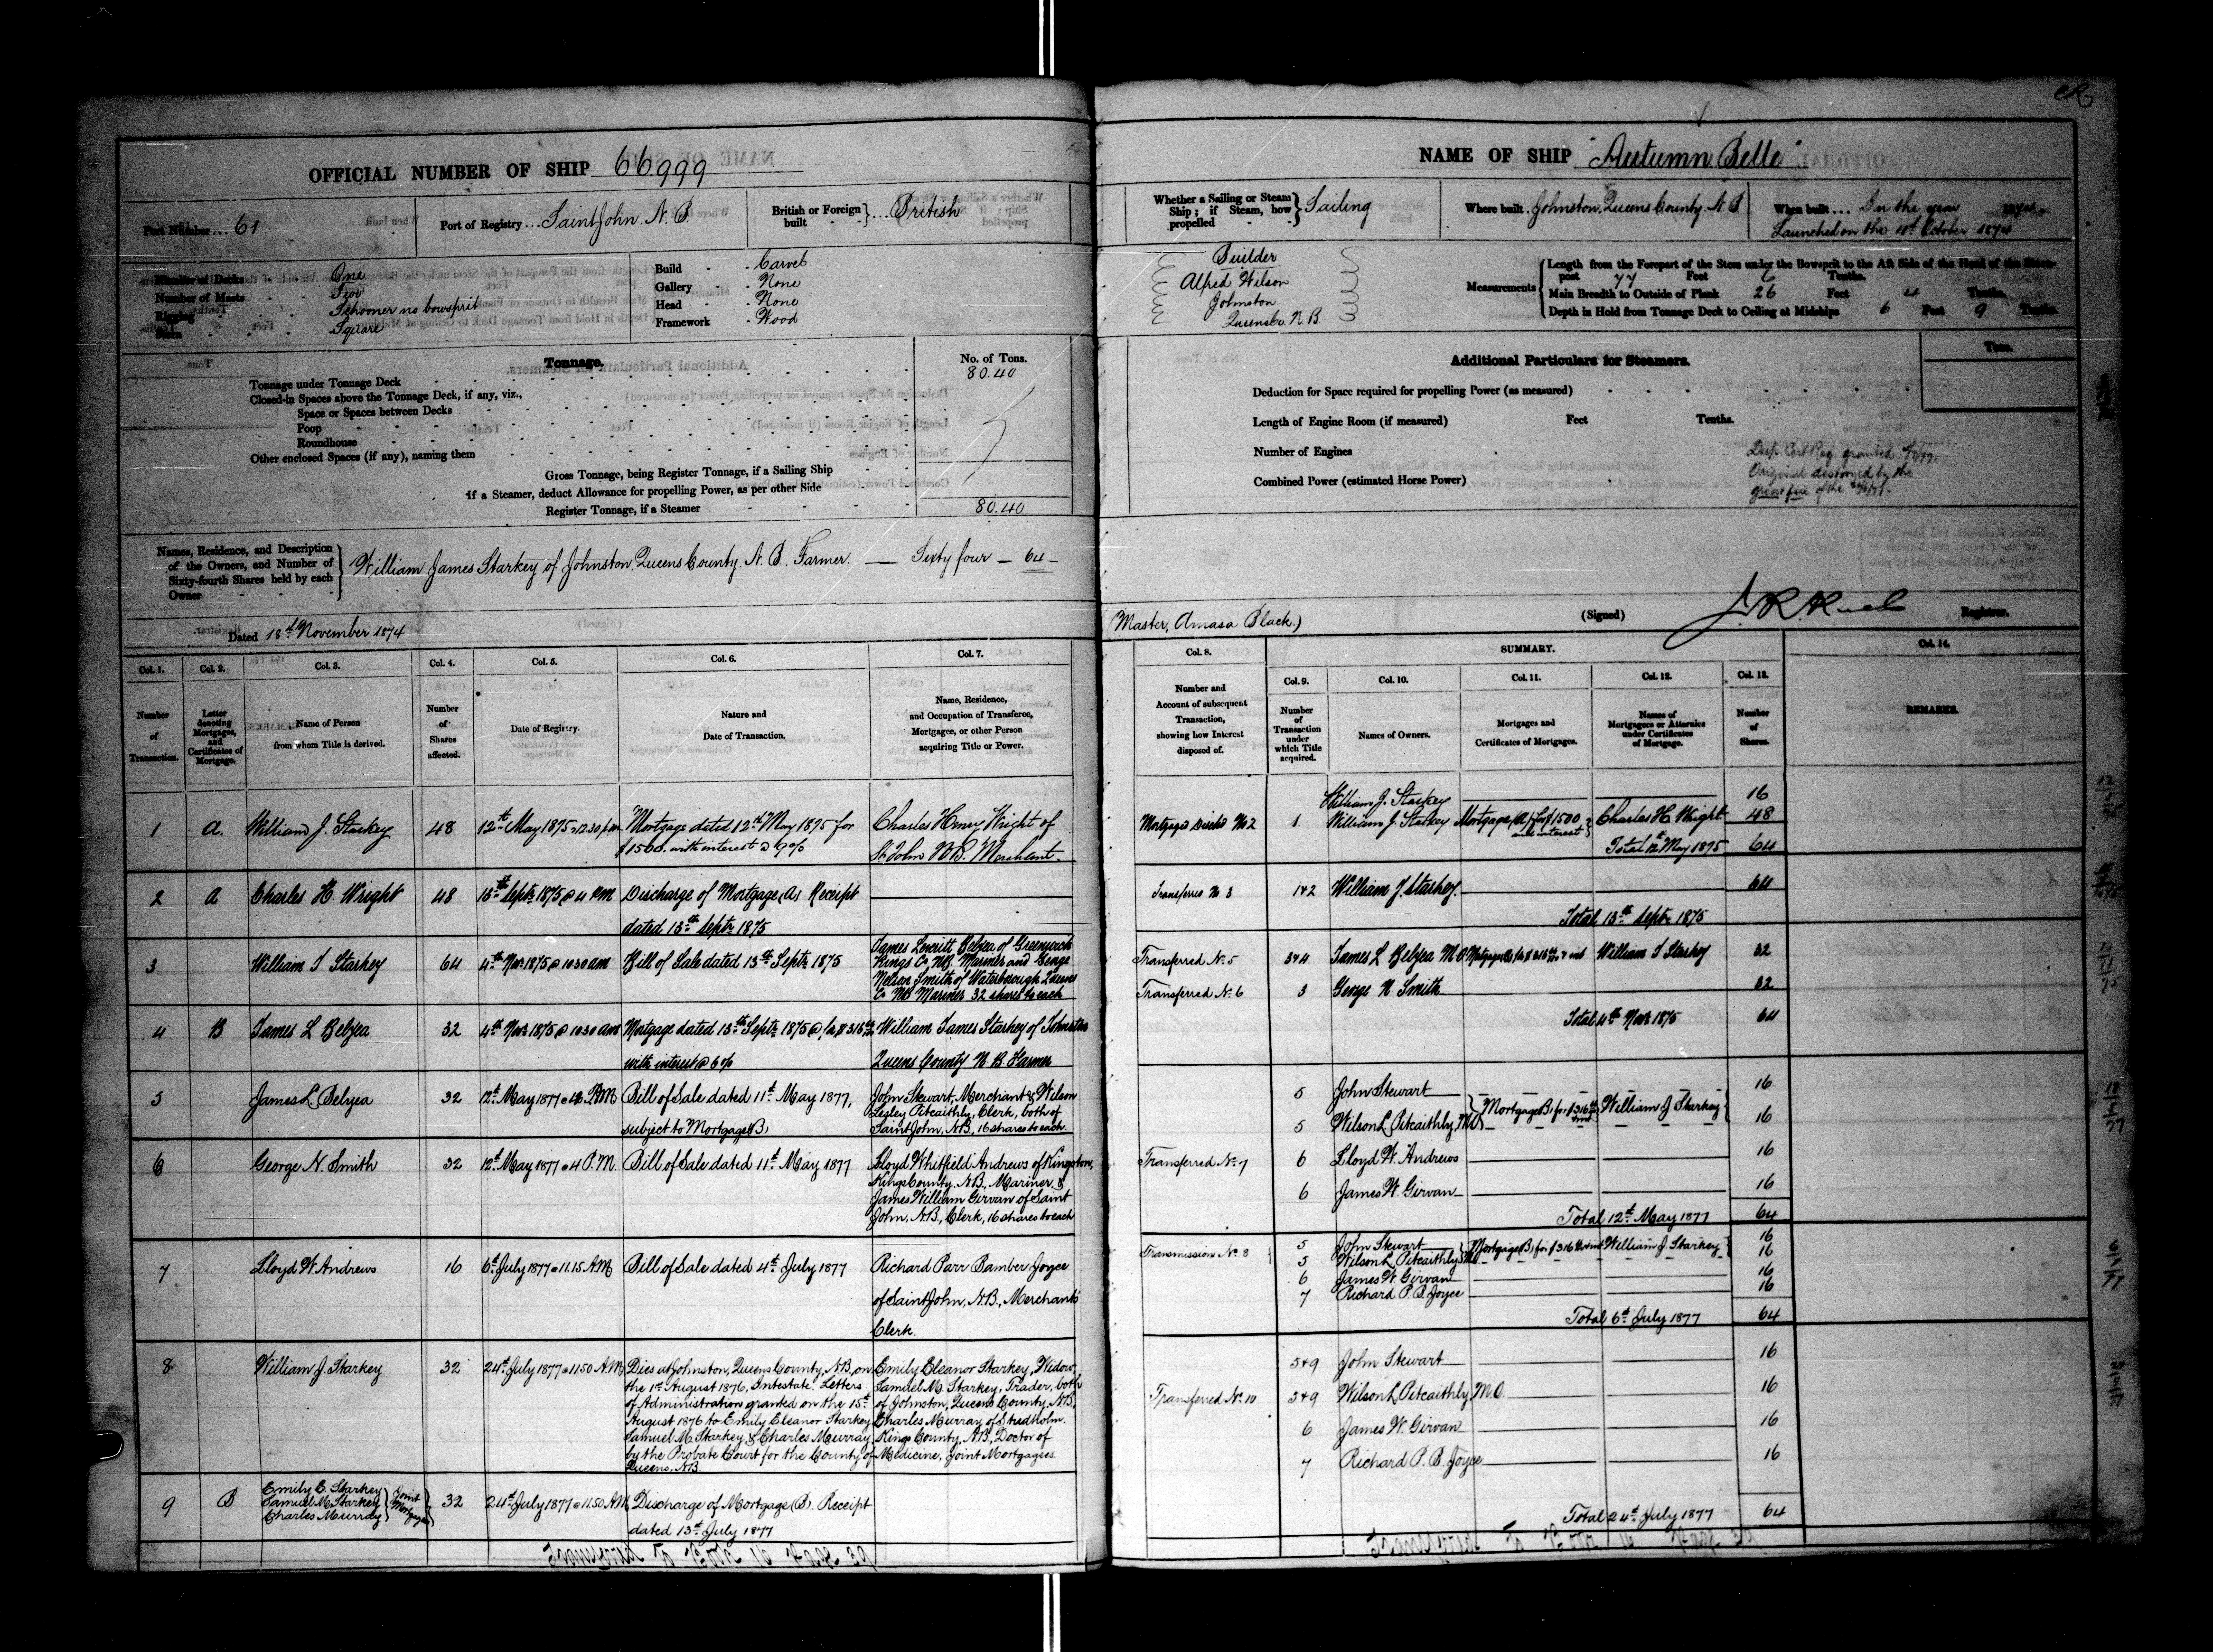 CR
OFFICIAL NUMBER OF SHIP 66999
Port Number ... 61
Port of Registry ... Saint John. N. B.
British or Foreign built } ... British
Number of Decks - - One
Number of Masts - - Two
Rigging - - Schooner no bowsprit
Stern - - Square
Build - - Carvel
Gallery - - None
Head - - None
Framework - Wood
Tonnage.
No. of Tons.
Tonnage under Tonnage Deck 80.40
Closed-in Spaces above the Tonnage Deck, if any, viz.,
Space or Spaces between Decks
Poop
Roundhouse
Other enclosed Spaces (if any), naming them
Gross Tonnage, being Register Tonnage, if a Sailing Ship
If a Steamer, deduct Allowance for propelling Power, as per other Side
Register Tonnage, if a Steamer 80.40
Names, Residence, and Description
of the Owners, and Number of
Sixty-fourth Shares held by each
Owner
William James Starkey of Johnston, Queens County. N. B. Farmer. — Sixty four — 64 —
Dated 18th November 1874
Col. 1. Col. 2. Col. 3. Col. 4. Col. 5. Col. 6. Col. 7.
Number of Transaction.
Letter denoting Mortgages, and Certificates of Mortgage.
Name of Person from whom Title is derived.
Number of Shares affected.
Date of Registry.
Nature and Date of Transaction.
Name, Residence, and Occupation of Transferee, Mortgagee, or other Person acquiring Title or Power.
1 A. William J. Starkey 48 12th May 1875 @ 12.30 p.m. Mortgage dated 12th May 1875 for Charles Henry Wright of
$1500. with interest @ 9% St John N.B. Merchant.
2 A Charles H. Wright 48 13th Septr 1875 @ 4 PM Discharge of Mortgage (A) Receipt
dated 13th Septr 1875
3 William J Starkey 64 4th Novr 1875 @ 10 30 am Bill of Sale dated 13th Septr 1875
James Leveritt Belyea of Greenwich
Kings Co NB. Mariner and George
Nelson Smith of Waterborough Queens
Co NB Mariner 32 shares to each
4 B James L Belyea 32 4th Novr 1875 @ 10 30 am Mortgage dated 13th Septr 1875 @ for $316 William James Starkey of Johnston
with interest @ 6% Queens County N. B. Farmer
5 James L. Belyea 32 12th May 1877 @ 4 P.M. Bill of Sale dated 11th May 1877,
subject to Mortgage (B)
John Stewart, Merchant & Wilson
Lesley Pitcaithly, Clerk, both of
Saint John, N.B., 16 shares to each.
6 George N. Smith 32 12th May 1877 @ 4 P.M. Bill of Sale dated 11th May 1877
Lloyd Whitfield Andrews of Kingston,
Kings County. N.B., Mariner &
James William Girvan of Saint
John, N.B., Clerk, 16 shares to each
7 Lloyd W. Andrews 16 6th July 1877 @ 11.15 A.M. Bill of Sale dated 4th July 1877
Richard Parr Bamber Joyce
of Saint John, N.B., Merchants
Clerk.
8 William J. Starkey 32 24th July 1877 @ 11.50 A.M.
Dies at Johnston, Queens County, N.B., on
the 1st August 1876, Intestate. Letters
of Administration granted on the 15th
August 1876 to Emily Eleanor Starkey
Samuel M. Starkey, & Charles Murray
by the Probate Court for the County of
Queens, N.B.
Emily Eleanor Starkey, Widow,
Samuel M. Starkey, Trader, both
of Johnston, Queens County, N.B.,
Charles Murray of Studholm.
Kings County, N.B., Doctor of
Medicine, Joint Mortgagees.
9 B Emily E. Starkey
Samuel M. Starkey
Charles Murray } Joint Mortgagees 32 24th July 1877 @ 11.50 A.M. Discharge of Mortgage (B). Receipt
dated 13th July 1877
NAME OF SHIP "Autumn Belle"
Whether a Sailing or Steam Ship; if Steam, how propelled } Sailing
Where built Johnston, Queens County. N. B
When built ... In the year 1874
Launched on the 10th October 1874
Builder
Alfred Wilson
Johnston
Queens Co. N. B.
Measurements
Length from the Forepart of the Stem under the Bowsprit to the Aft Side of the Head of the Stern-
post 77 Feet 6 Tenths.
Main Breadth to Outside of Plank 26 Feet 4 Tenths.
Depth in Hold from Tonnage Deck to Ceiling at Midships 6 Feet 9 Tenths.
Additional Particulars for Steamers.
Tons.
Deduction for Space required for propelling Power (as measured)
Length of Engine Room (if measured) Feet Tenths.
Number of Engines
Combined Power (estimated Horse Power)
Dup. Cert Reg. granted
Original destroyed by the
great fire of the 20/6/77.
(Master, Amasa Black.)
(Signed) Registrar.
Col. 8. SUMMARY. Col. 14.
Col. 9. Col. 10. Col. 11. Col. 12. Col. 13.
Number and Account of subsequent Transaction, showing how Interest disposed of.
Number of Transaction under which Title acquired.
Names of Owners.
Mortgages and Certificates of Mortgages.
Names of Mortgagees or Attornies under Certificates of Mortgage.
Number of Shares.
REMARKS.
William J. Starkey 16
Mortgage Disch'd No 2 1. William J. Starkey Mortgage (A) for $1500 and interest Charles H. Wright 48
Total 12th May 1875 64
Transferred No 3 1 & 2 William J. Starkey. 64
Total 13th Septr 1875
Transferred No. 5 3 & 4 James L Belyea M.O Mortgage B for $316 & int William J Starkey 32
Transferred No. 6 3 George N. Smith 32
Total 4th Novr 1875 64
5 John Stewart 16
Mortgage B, for $316 & int William J Starkey
5 Wilson L Pitcaithly, M.O. 16
Transferred No. 7 6 Lloyd W. Andrews 16
6 James W. Girvan 16
Total 12th May 1877 64
Transmission No. 8 5 John Stewart 16
Mortgage B, for $316 & int William J Starkey
5 Wilson L. Pitcaithly M.O. 16
6 James W Girvan 16
7 Richard P. B. Joyce 16
Total 6th July 1877 64
5 & 9 John Stewart 16
Transferred No. 10 5 & 9 Wilson L Pitcaithly, M.O. 16
6 James W. Girvan 16
7 Richard P. B. Joyce 16
Total 24th July 1877 64